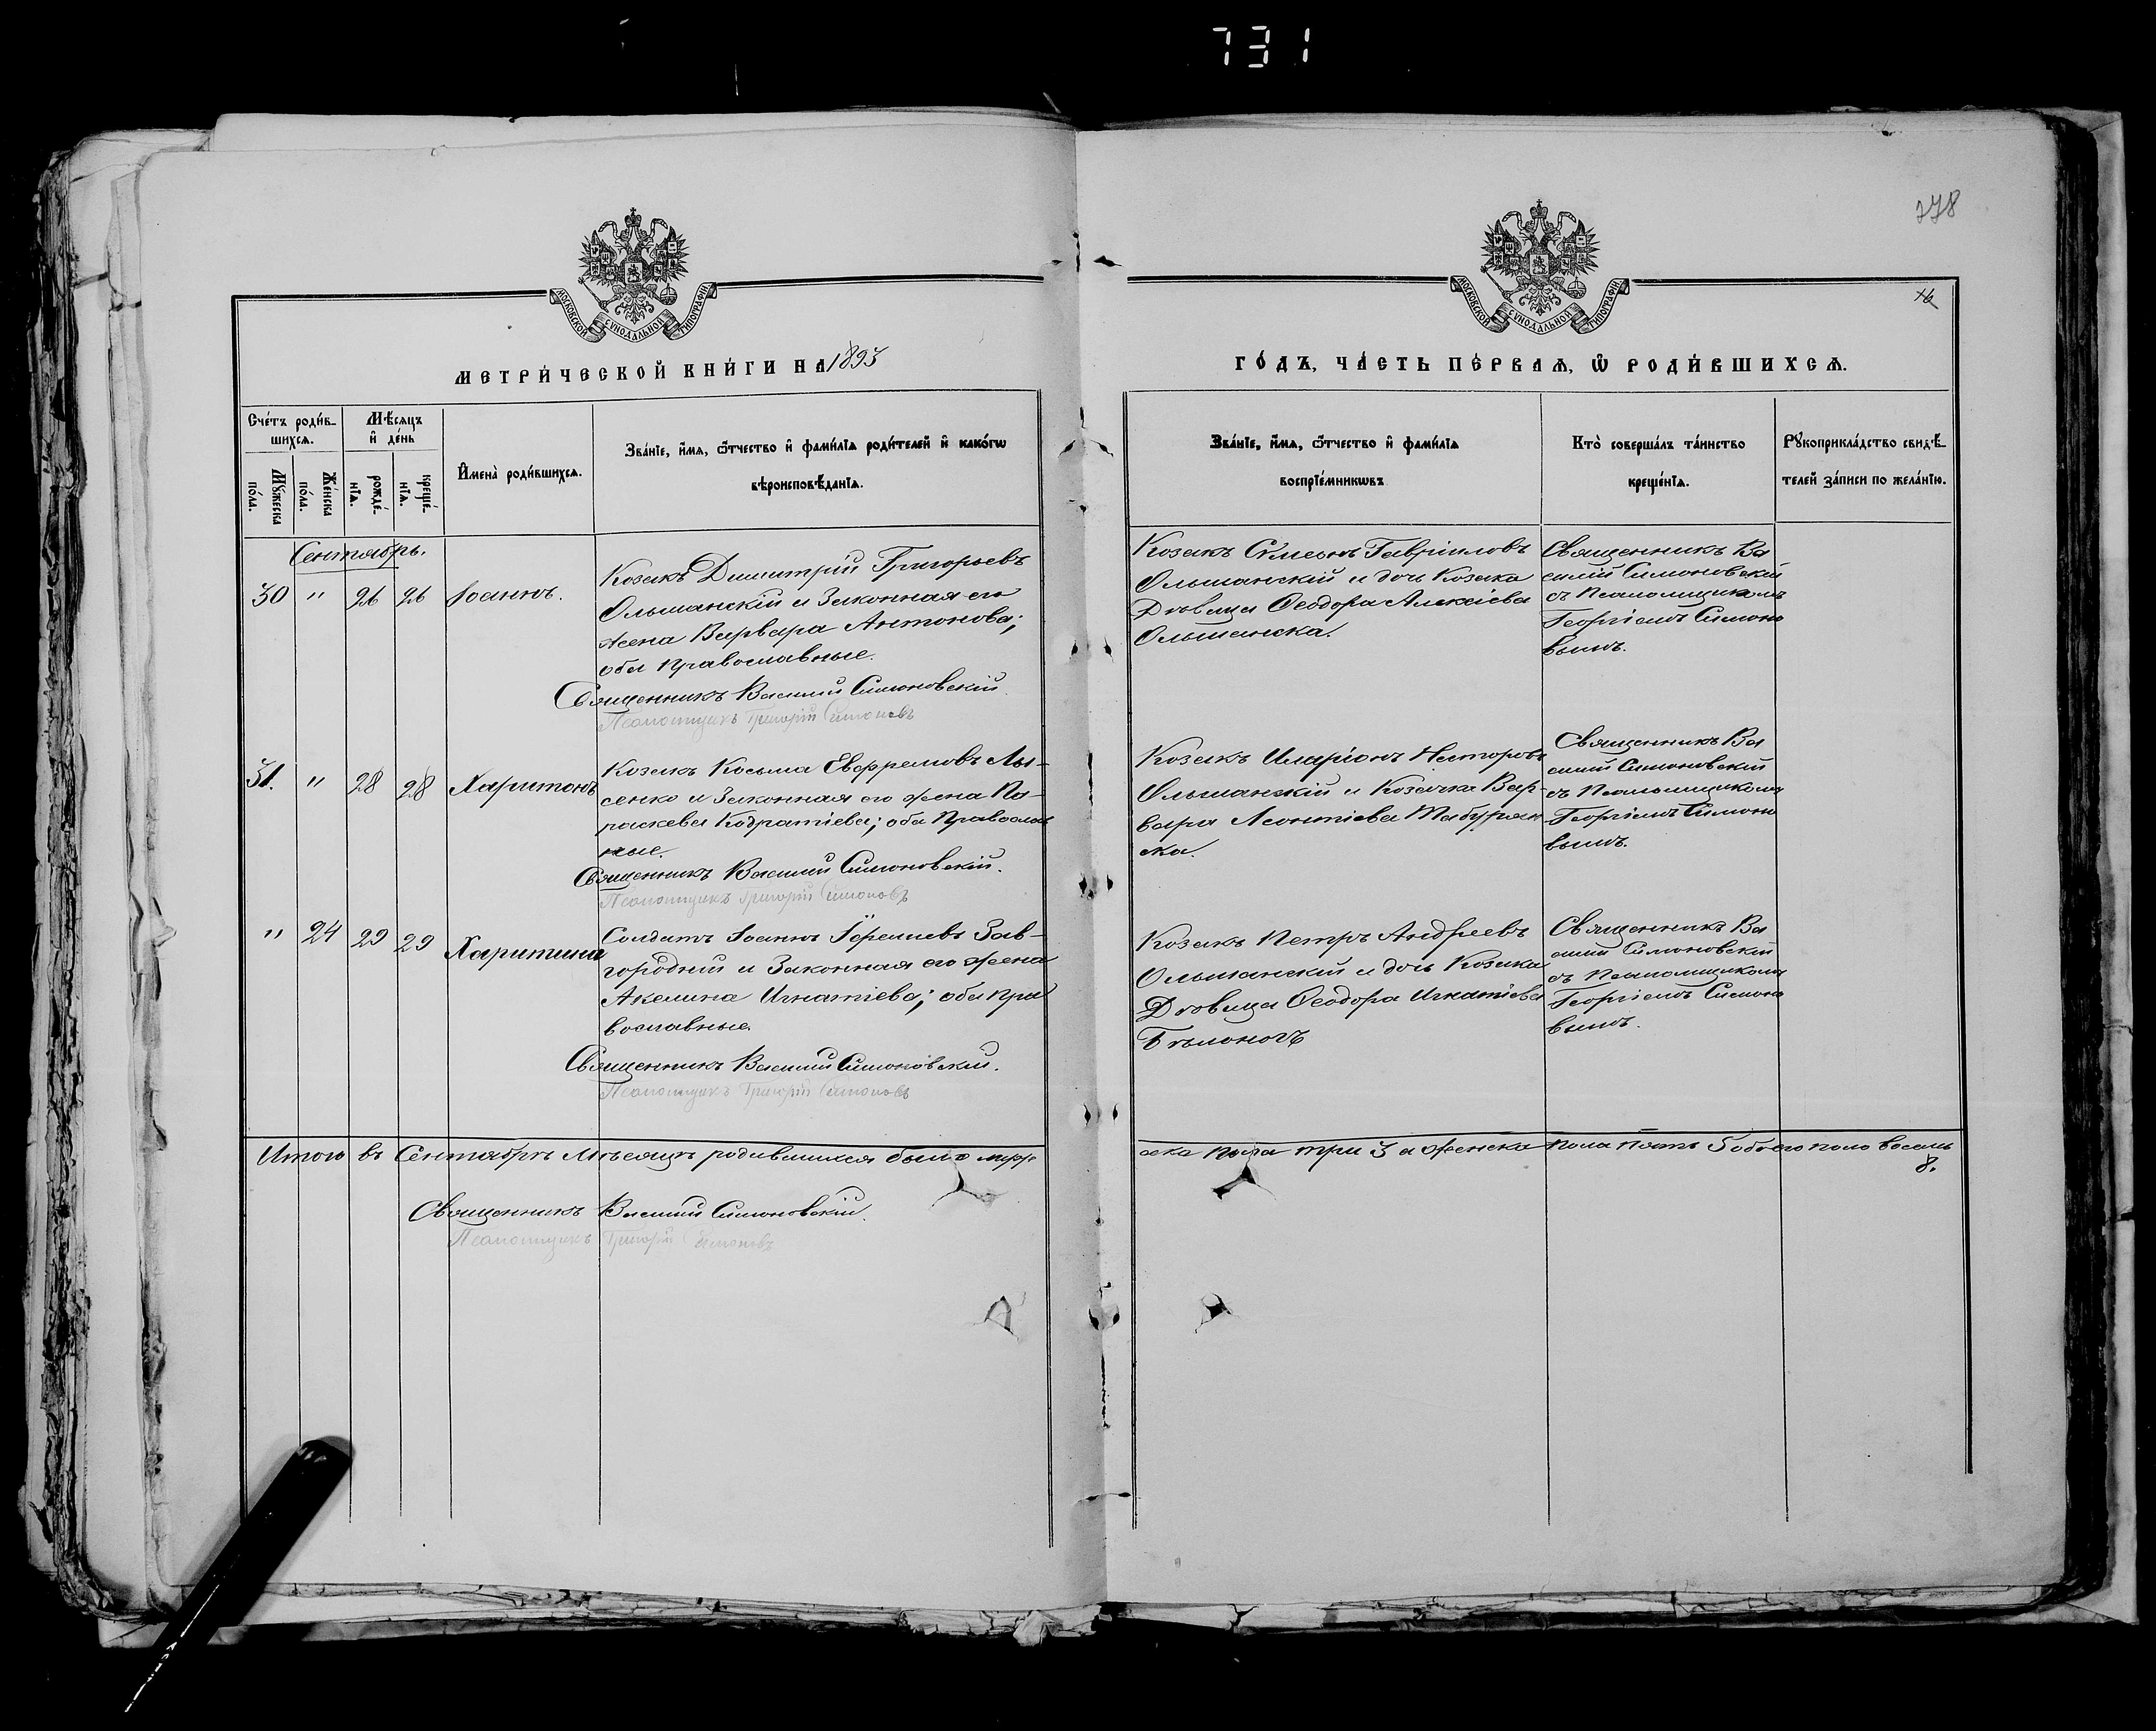 731
778
МОСКОВСКОЙ СѴНОДАЛЬНОЙ ТИПОГРАФІИ
МОСКОВСКОЙ СѴНОДАЛЬНОЙ ТИПОГРАФІИ
МЕТРИ́ЧЕСКОЙ КНИ́ГИ НА 1893
ГО́ДЪ, ЧА́СТЬ ПЕ́РВАѦ, Ѡ҆ РОДИ́ВШИХСѦ.
Сче́тъ роди́в-
шихсѧ.
Мѣ́сѧцъ
и҆ де́нь
Мꙋ́жеска
по́ла.
Же́нска
по́ла.
рожде́-
нїѧ.
креще́-
нїѧ.
И҆мена̀ роди́вшихсѧ.
Зва́нїе, и҆́мѧ, ѻ҆́тчество и҆ фами́лїѧ роди́телей и҆ како́гѡ
вѣроисповѣ́данїѧ.
Зва́нїе, и҆́мѧ, ѻ҆́тчество и҆ фами́лїѧ
воспрїе́мникѡвъ
Кто̀ соверша́лъ та́инство
креще́нїѧ.
Рꙋкоприкла́дство свидѣ́-
телей за́писи по жела́нїю.
Сентябрь.
30 " 26 26 Іоаннъ.
Козакъ Димитрій Григорьевъ
Ольшанскій и Законная его
жена Варвара Антонова;
оба православные.
Священникъ Василій Симоновскій
Псаломщикъ Григорій Симоновъ
Козакъ Сѵмеонъ Гавріиловъ
Ольшанскій и дочь Козака
Дѣвица Ѳеодора Алексіева
Ольшанска.
Священникъ Ва
силій Симоновскій
съ Псаломщикомъ
Георгіемъ Симоно
вымъ.
31. " 28 28 Харитонъ
Козакъ Косьма Евфремовъ Лы-
сенко и Законная его жена Па-
раскева Кодратіева; оба Православ
ные.
Священникъ Василій Симоновскій.
Псаломщикъ Григорій Симоновъ
Козакъ Иларіонъ Несторовъ
Ольшанскій и Козачка Вар-
вара Леонтіева Табурян
ска.
Священникъ Ва
силій Симоновскій
съ Псаломщикомъ
Георгіемъ Симоно
вымъ.
" 24 29 29 Харитина
Солдатъ Іоаннъ Іереміевъ Зав-
городній и Законная его жена
Акелина Игнатіева; оба пра
вославные.
Священникъ Василій Симоновскій.
Псаломщикъ Григорій Симоновъ
Козакъ Петръ Андреевъ
Ольшанскій и дочь Козака
Дѣвица Ѳеодора Игнатіева
Бѣлоногъ
Священникъ Ва
силій Симоновскій
съ Псаломщикомъ
Георгіемъ Симоно
вымъ.
Итого въ Сентябрѣ Мѣсяцѣ родившихся было муже
ска пола три 3 а женска пола пять 5 обоего поло восемь
8.
Священникъ Василій Симоновскій.
Псаломщикъ Григорій Симоновъ